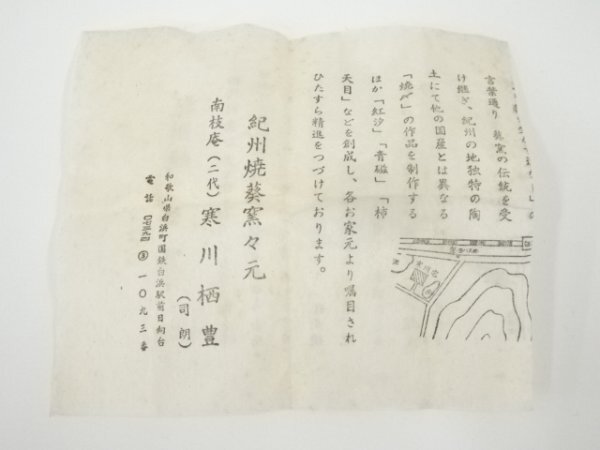 言葉通り 葵窯の伝統を受
け継ぎ、紀州の地独特の陶
土にて他の国産とは異なる
「焼〆」の作品を制作する
ほか「紅汐」「青磁」「柿
天目」などを創成し、各お家元より嘱目され
ひたすら精進をつづけております。
紀州焼葵窯々元
南枝庵(二代) 寒川栖豊
(司朗)
和歌山県白浜町国鉄白浜駅前日向台
電話 ③ 一〇九三番